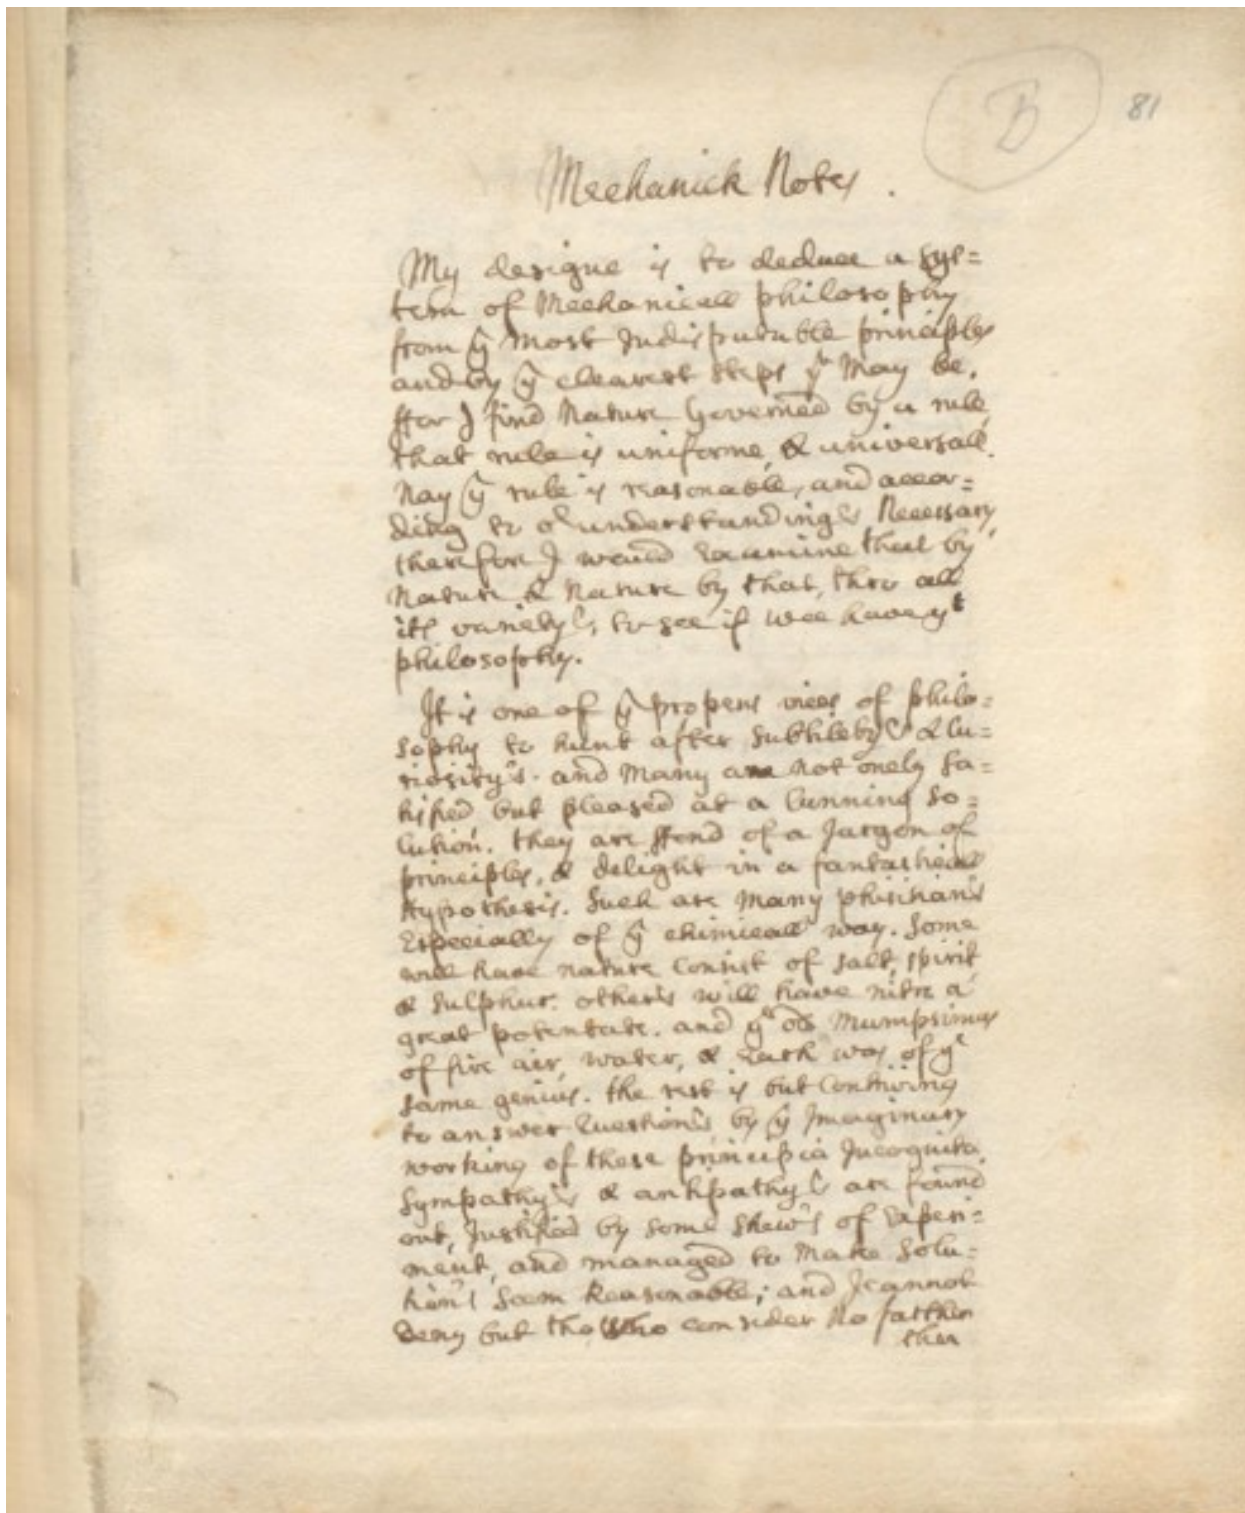 B
81
Mechanick Notes.
My designe is to deduce a sys=
tem of Mechanicall philosophy
from ye most Indisputable principles
and by ye clearest steps yt May be.
ffor I find Nature Governed by a rule,
that rule is uniforme, & universall.
Nay ye rule is reasonable, and accor=
ding to or understandings Necessary,
therefore I would Examine that by
Nature & Nature by that, thro all
its variety's, to see if wee have yt
philosophy.
It is one of ye propens vices of philo=
sophy to hunt after subtilety's & Cu=
riosity's. and Many are Not onely sa=
tisfied but pleased at a Cunning so=
lution. they are ffond of a Jargon of
principles, & delight in a fantasticall
Hypothesis. Such are Many phisitians
Especially of ye chimicall way. Some
will have nature Consist of salt, spirit
& sulphur. others will have nitre a
great potentate. and ye old Mumpsimus
of fire air, water, & Earth was of ye
same genius. the rest is but Contriving
to answer Questions by ye Imaginary
working of these principia Incognita.
Sympathy's & antipathy's are found
out, Justified by some shew's of Experi=
ment, and managed to Make Solu=
tion's seem Reasonable; and I cannot
Deny but tho who consider No farther
then